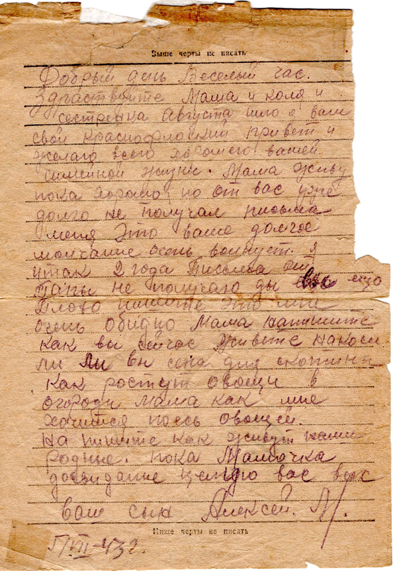 Выше черты не писать
Добрый день Веселый час.
Здраствуйте Мама и Коля и
сестрена Августа шлю я вам
свой краснофлотский привет и
желаю всего хорошего вашей
семейной жизне. Мама живу
пока хорошо, но от вас уже
долго не получал письма
меня это ваше долгое
молчание осень волнует. Я
итак 2 года Писема от
Папы не получаю ды вы ищо
Плохо пишите это мни
осень обидно Мама напишите
как вы сейчас живете накоси
ли ли вы сена для скотины
Как ростут овощи в
огороди Мама как мне
хочится поесь овощей.
На пишите как живут наши
родные. пока Мамочка
досвидание целую вас всех
ваш сын Алексей. М.
Ниже черты не писать
5/VII-43г.